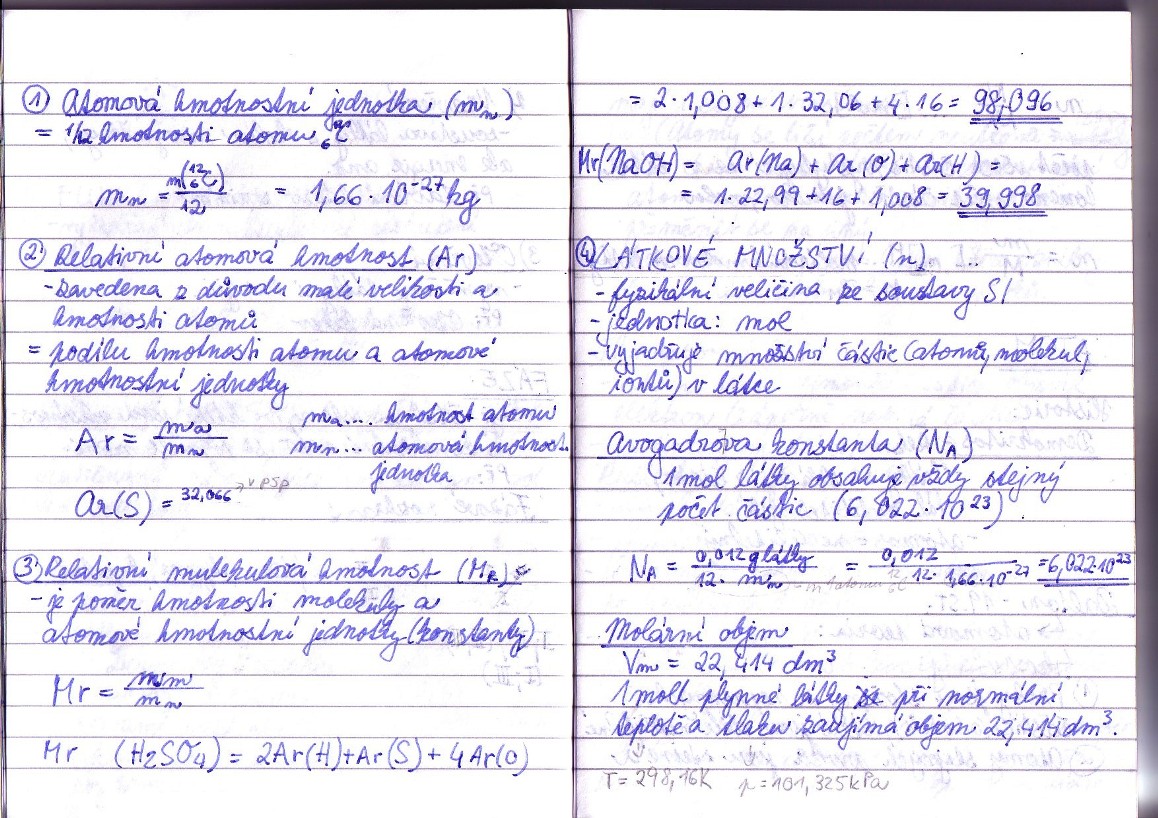 ① Atomová hmotnostní jednotka (mu)
= 1/12 hmotnosti atomu ¹²₆C
mu = m(¹²₆C)/12 = 1,66·10⁻²⁷ kg
② Relativní atomová hmotnost (Ar)
- zavedena z důvodu malé velikosti a
hmotnosti atomů
= podílu hmotnosti atomu a atomové
hmotnostní jednotky
Ar = ma/mu
ma.... hmotnost atomu
mu... atomová hmotnost.
jednotka
Ar(S) = 32,066 → v PSP
③ Relativní molekulová hmotnost (Mr)
- je poměr hmotnosti molekuly a
atomové hmotnostní jednotky (konstanty)
Mr = mm/mu
Mr (H₂SO₄) = 2Ar(H)+Ar(S)+4Ar(O)
= 2·1,008+1·32,06+4·16= 98,096
Mr(NaOH)= Ar(Na)+Ar(O)+Ar(H)=
= 1·22,99+16+1,008 = 39,998
④ LÁTKOVÉ MNOŽSTVÍ (n)
- fyzikální veličina ze soustavy SI
- jednotka: mol
- vyjadřuje množství částic (atomů, molekul,
iontů) v látce
Avogadrova konstanta (NA)
1 mol látky obsahuje vždy stejný
počet částic (6,022·10²³)
NA = 0,012 g látky/12·mu = 0,012/12·1,66·10⁻²⁷ = 6,022·10²³
m atomu ¹²₆C
Molární objem
Vm = 22,414 dm³
1 mol plynné látky při normální
teplotě a tlaku zaujímá objem 22,414 dm³.
T = 298,16K p = 101,325 kPa